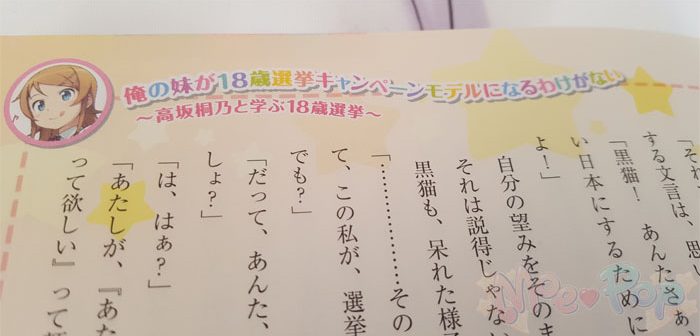 俺の妹が18歳選挙キャンペーンモデルになるわけがない
～高坂桐乃と学ぶ18歳選挙～
「それ
する文言は、思
「黒猫！　あんたさぁ、
い日本にするために
よ！」
自分の望みをそのま
それは説得じゃな
黒猫も、呆れた様子
「……………………その
て、この私が、選挙
でも？」
「だって、あんた、
しょ？」
「は、はぁ？」
「あたしが、『あた
って欲しい』って